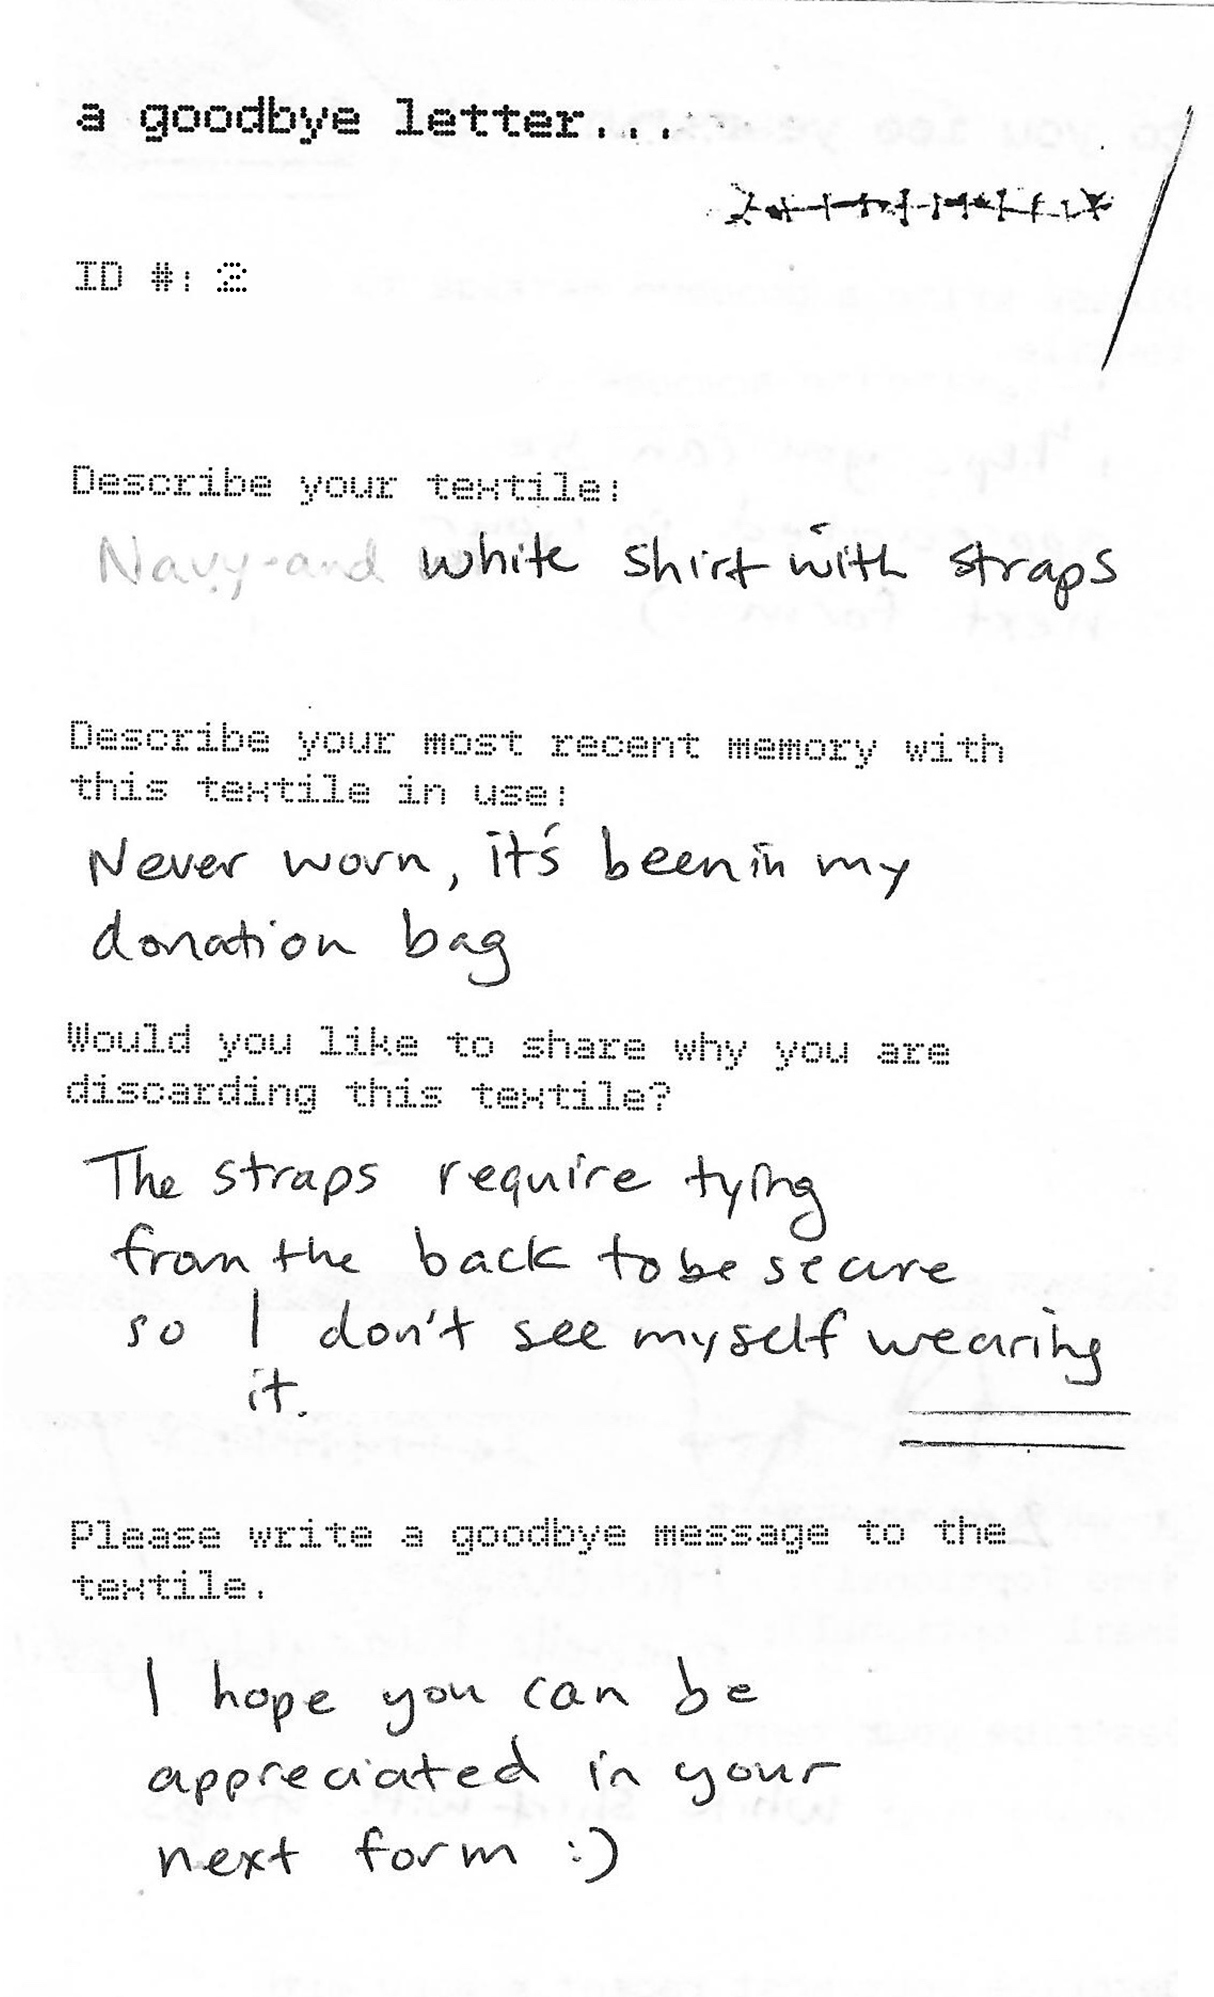 a goodbye letter...
ID #: 2
Describe your textile:
Navy and white shirt with straps
Describe your most recent memory with
this textile in use:
Never worn, it's been in my
donation bag
Would you like to share why you are
discarding this textile?
The straps require tying
from the back to be secure
so I don't see myself wearing
it.
Please write a goodbye message to the
textile.
I hope you can be
appreciated in your
next form :)